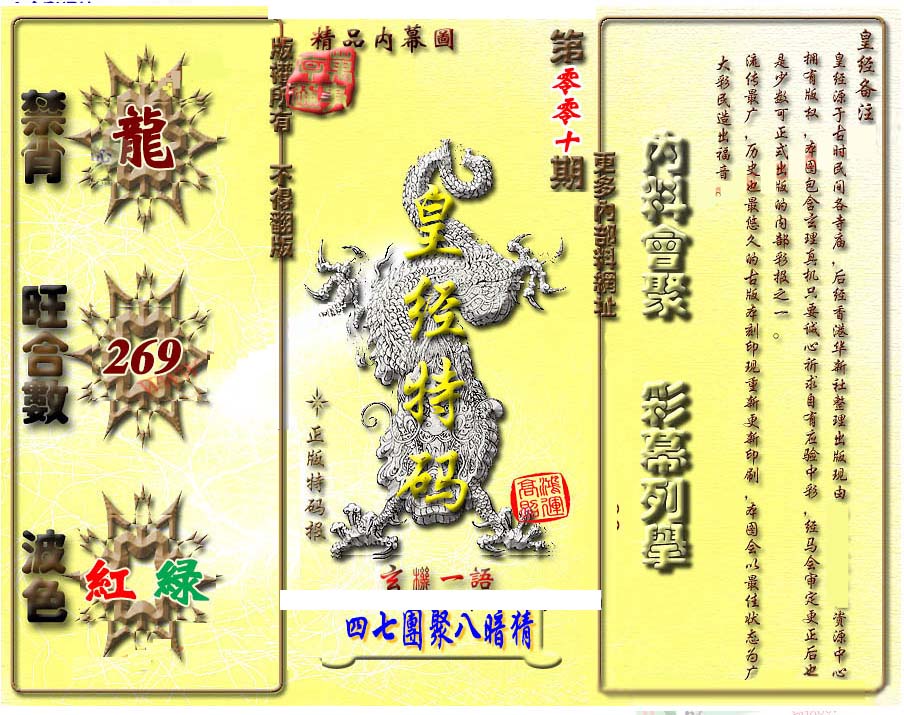 皇经备注
皇经源于古时民间各寺庙,后经香港华新社整理出版现由 资源中心
拥有版权,本图包含玄理真机只要诚心祈求自有应验中彩,经马会审定更正后也
是少数可正式出版的内部彩报之一。
流传最广,历史也最悠久的古版本刻印现重新更新印刷,本图会以最佳状态为广
大彩民造出福音
内料會聚 彩幕列舉
更多內部料網址
第零零十期
精品内幕圖
皇经特码
正版特码报
鴻運高照
玄機一語
四七團聚八暗猜
版權所有 不得翻版
禁肖
龍
旺合數
269
波色
紅 緑